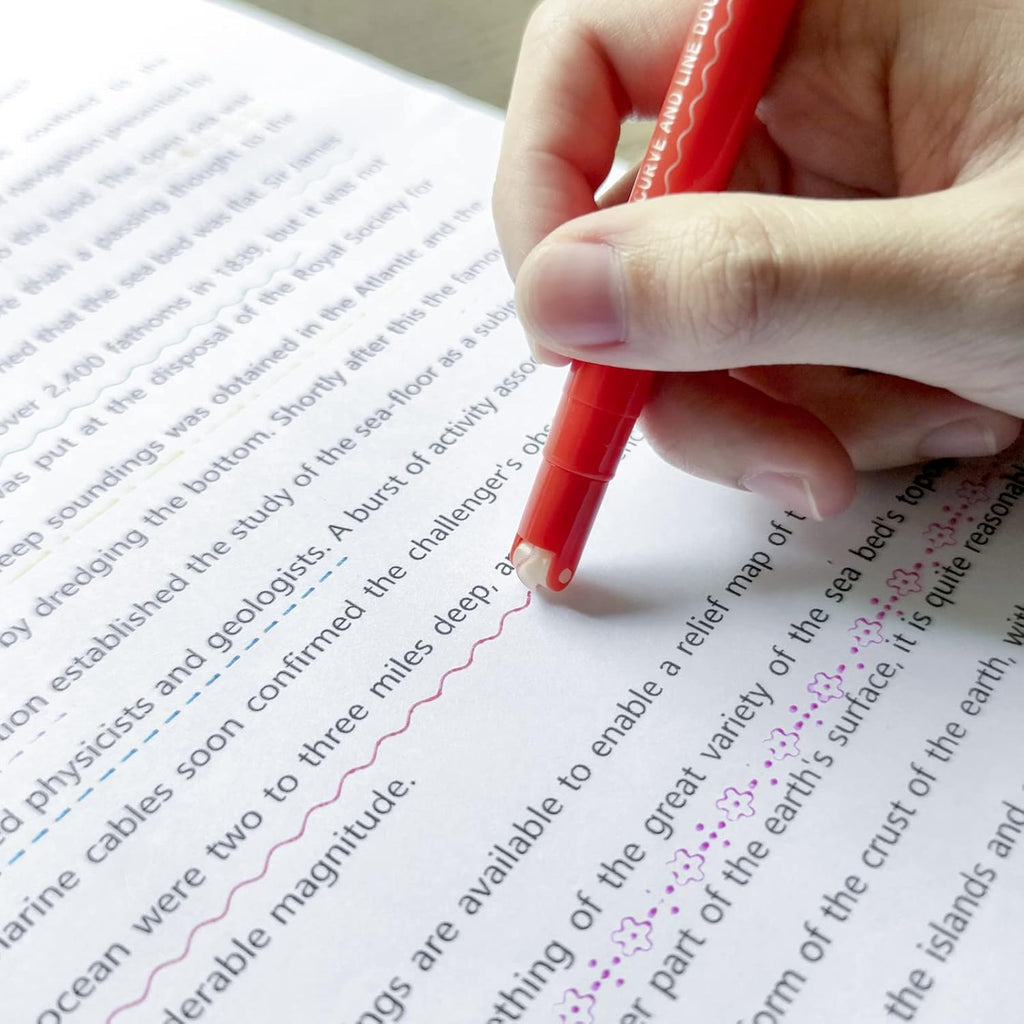 CURVE AND LINE DOU
confines to the
navigation presented by
the land. The open sea with
than a passing thought to the
that the sea bed was flat. Sir James
over 2,400 fathoms in 1839, but it was no
was put at the disposal of the Royal Society for
eep soundings was obtained in the Atlantic and the
by dredging the bottom. Shortly after this the famo
tion established the study of the sea-floor as a subj
ed physicists and geologists. A burst of activity asso
narine cables soon confirmed the challenger's obs
ocean were two to three miles deep, a
derable magnitude.
ngs are available to enable a relief map of t
ething of the great variety of the sea bed's topo
er part of the earth's surface, it is quite reasonabl
orm of the crust of the earth, with
the islands and